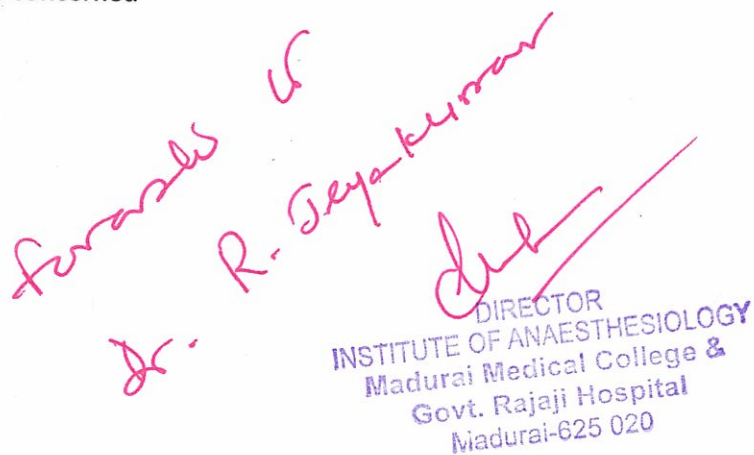 to
Dr. R. Jeyakumar
DIRECTOR
INSTITUTE OF ANAESTHESIOLOGY
Madurai Medical College &
Govt. Rajaji Hospital
Madurai-625 020